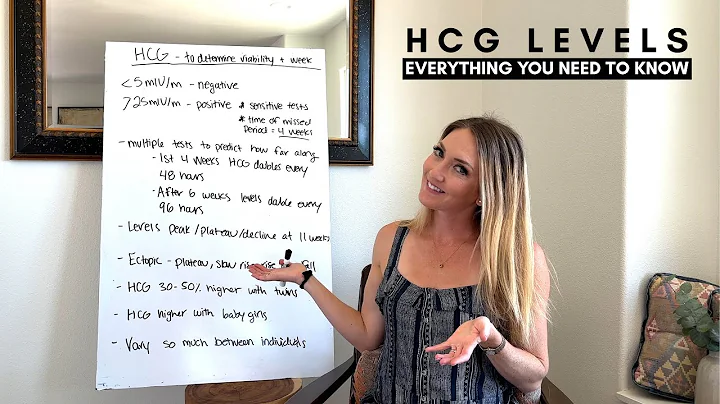 HCG LEVELS
EVERYTHING YOU NEED TO KNOW
HCG - to determine viability + week
<5mIU/m - negative
>25mIU/m - positive * sensitive tests
* time of missed
period = 4 weeks
- multiple tests to predict how far along
- 1st 4 weeks HCG doubles every
48 hours
- After 6 weeks levels double every
96 hours
- Levels peak/plateau/decline at 11 weeks
- Ectopic - plateau, slow rise
- HCG 30-50% higher with twins
- HCG higher with baby girls
- Vary so much between individuals